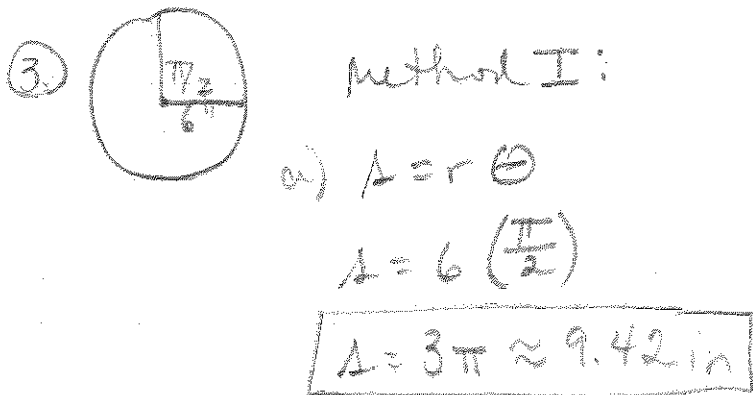 3.
π/2
6"
Method I:
a) s = r θ
s = 6 (π/2)
s = 3π ≈ 9.42 in